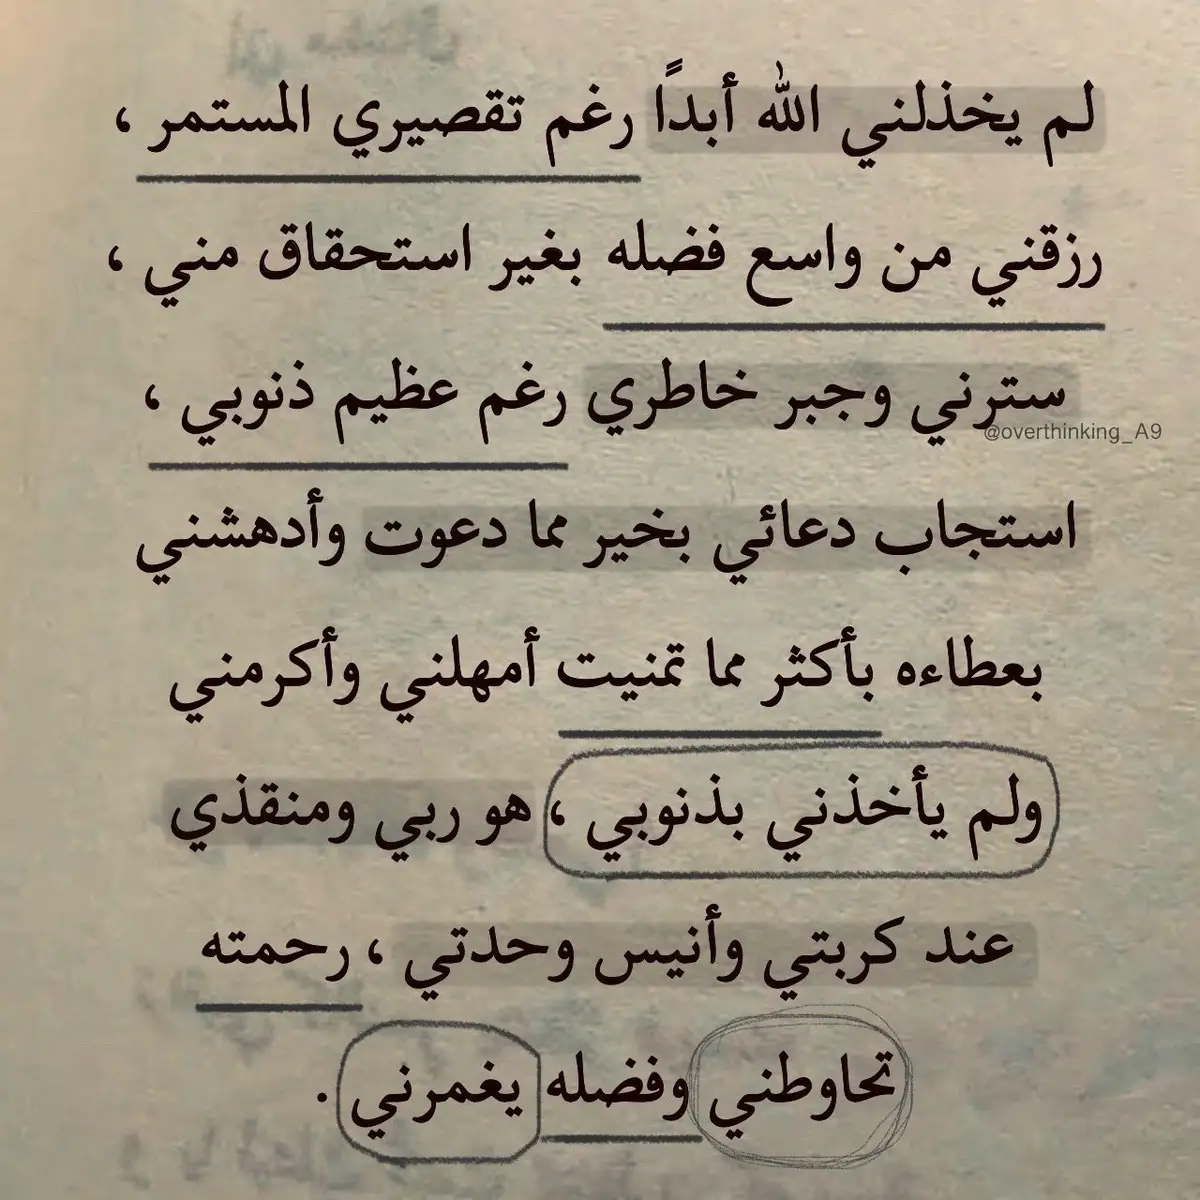 لم يخذلني الله أبداً رغم تقصيري المستمر ،
رزقني من واسع فضله بغير استحقاق مني ،
سترني وجبر خاطري رغم عظيم ذنوبي ،
@overthinking_A9
استجاب دعائي بخير مما دعوت وأدهشني
بعطاءه بأكثر مما تمنيت أمهلني وأكرمني
ولم يأخذني بذنوبي ، هو ربي ومنقذي
عند كربتي وأنيس وحدتي ، رحمته
تحاوطني وفضله يغمرني .